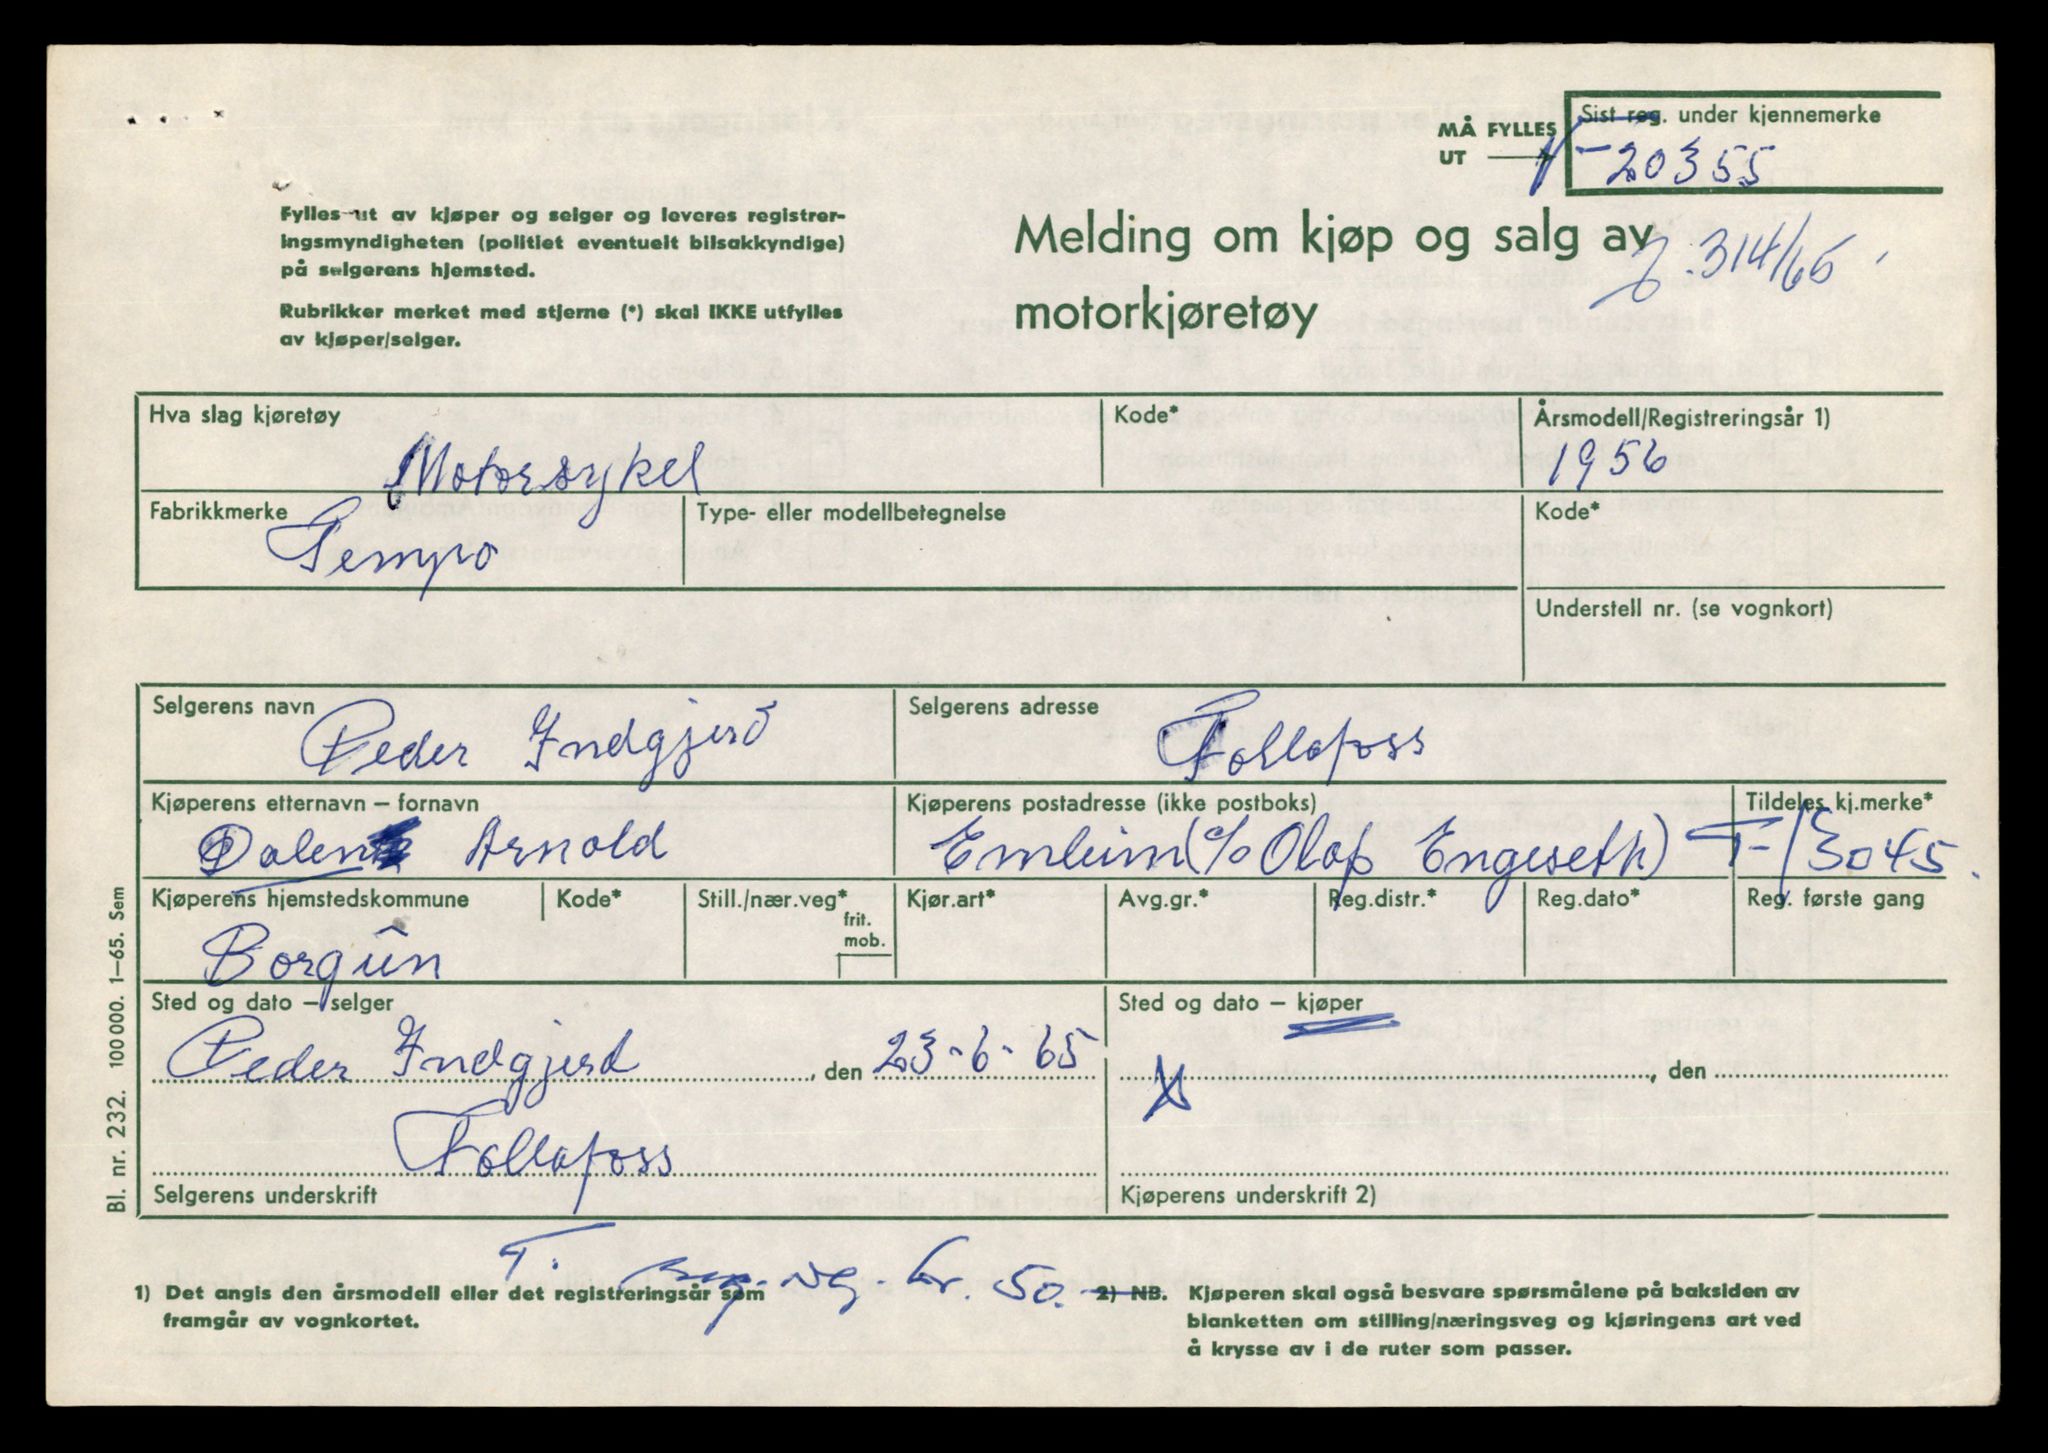 MÅ FYLLES
UT
Sist reg. under kjennemerke
-20355
Fylles ut av kjøper og selger og leveres registrer-
ingsmyndigheten (politiet eventuelt bilsakkyndige)
på selgerens hjemsted.
Rubrikker merket med stjerne (*) skal IKKE utfylles
av kjøper/selger.
Melding om kjøp og salg av
motorkjøretøy
J. 314/65
Hva slag kjøretøy
Motorsykel
Kode*
Årsmodell/Registreringsår 1)
1956
Fabrikkmerke
Tempo
Type- eller modellbetegnelse
Kode*
Understell nr. (se vognkort)
Selgerens navn
Peder Indgjerd
Selgerens adresse
Follafoss
Kjøperens etternavn – fornavn
Dalen Arnold
Kjøperens postadresse (ikke postboks)
Emleim (c/o Olaf Engeseth)
Tildeles kj.merke*
T-13045.
Kjøperens hjemstedskommune
Borgûn
Kode*
Still./nær.veg*
frit.
mob.
Kjør.art*
Avg.gr.*
Reg.distr.*
Reg.dato*
Reg. første gang
Sted og dato – selger
Peder Indgjerd, den 23-6-65
Follafoss
Selgerens underskrift
Sted og dato – kjøper
X , den
Kjøperens underskrift 2)
Bl. nr. 232. 100 000. 1–65. Sem
T. kr. 50.-
1) Det angis den årsmodell eller det registreringsår som
framgår av vognkortet.
2) NB. Kjøperen skal også besvare spørsmålene på baksiden av
blanketten om stilling/næringsveg og kjøringens art ved
å krysse av i de ruter som passer.